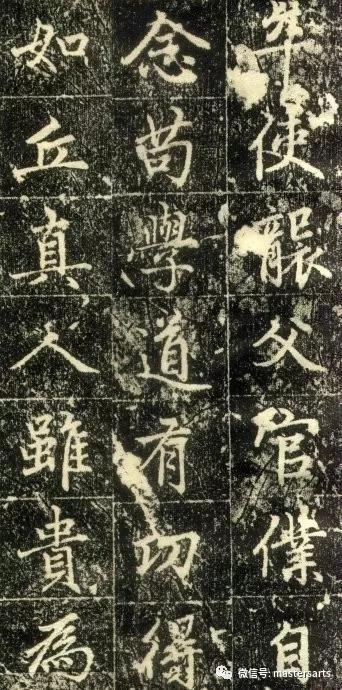 使襲父官僕自
念苟學道有功得
如丘真人雖貴為
微信号: mastersarts